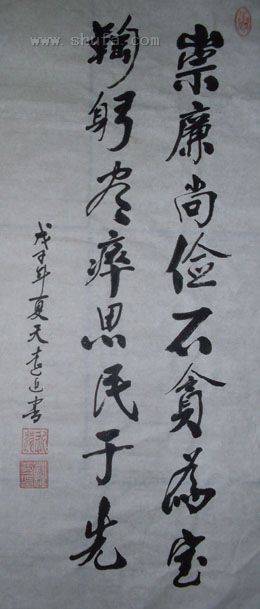 www.shufa.com
崇廉尚俭不贪為宝
鞠躬尽瘁思民于先
戊子年夏天書